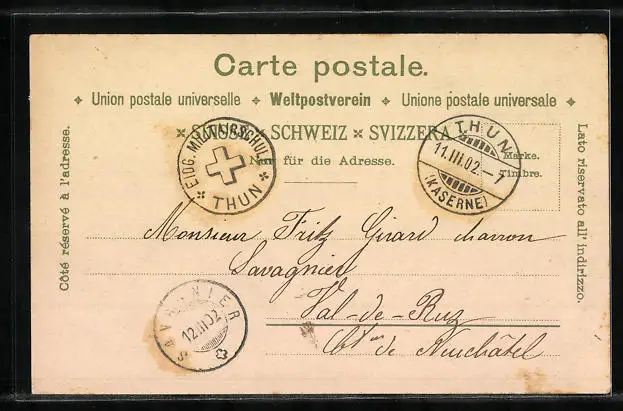 Carte postale.
Union postale universelle Weltpostverein Unione postale universale
SUISSE SCHWEIZ SVIZZERA
Nur für die Adresse.
Marke.
Timbre.
Côté réservé à l'adresse.
Lato riservato all' indirizzo.
EIDG. MILITÄRSCHULE
THUN
THUN
11.III.02.–7
(KASERNE)
Monsieur Fritz Girard charron
Savagnier
Val-de-Ruz
Ct.on de Neuchâtel
SAVAGNIER
12.III.02